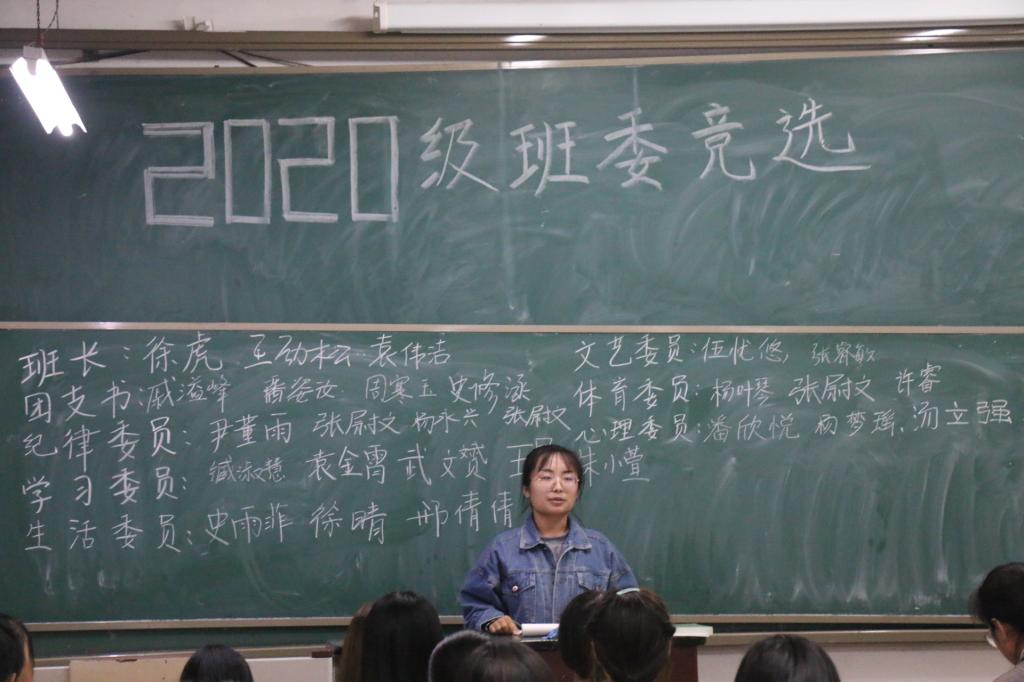 2020级班委竞选
班长：徐虎 王劲松 袁伟洁
团支书：戚溢峰 周寒玉 史修泳
纪律委员：尹董雨 张尉文 杨永兴 张尉文
学习委员：臧淑慧 袁金霄 武文赞 朱小萱
生活委员：史雨菲 徐晴 邢倩倩
文艺委员：伍忧悠，张睿敏
体育委员：杨叶琴 张尉文 许睿
心理委员：潘欣悦 杨梦瑶、汤立强